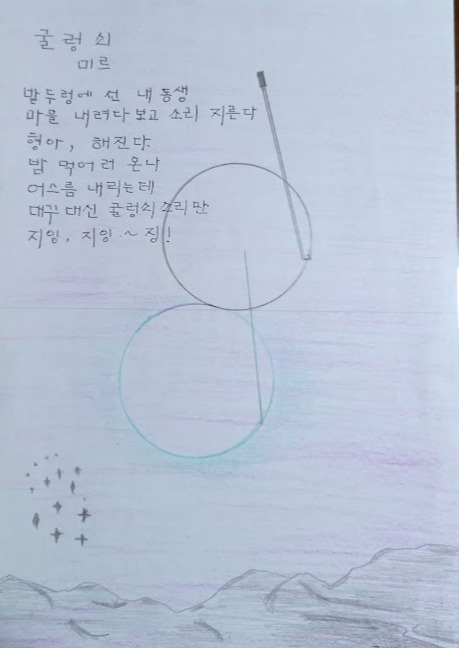 굴렁쇠
미르
밭두렁에 선 내 동생
마을 내려다 보고 소리 지른다
형아, 해진다.
밥 먹어러 온나
어스름 내리는데
대꾸 대신 굴렁쇠 소리만
지잉, 지잉 ~ 징!